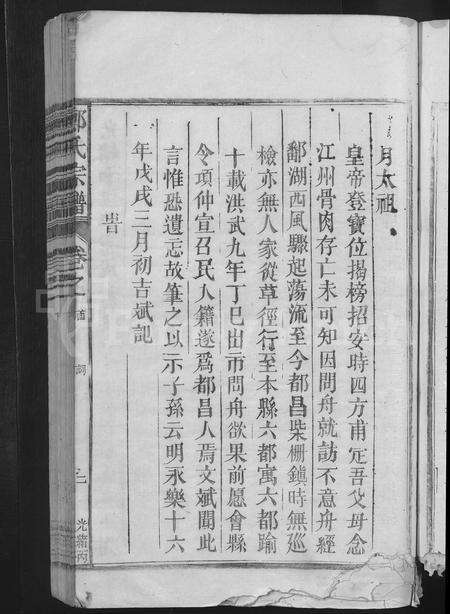 明太祖
皇帝登寶位揭榜招安時四方甫定吾父母念
江州骨肉存亡未可知因間舟就訪不意舟經
鄱湖西風驟起蕩流至今都昌柴棚鎮時無巡
檢亦無人家從草徑行至本縣六都寓六都踰
十載洪武九年丁巳出市問舟欲果前愿會縣
令項仲宣召民入籍遂爲都昌人焉文斌聞此
言惟恐遺忘故筆之以示子孫云明永樂十六
年戊戌三月初吉斌記
氏宗譜
卷之
光緒丙